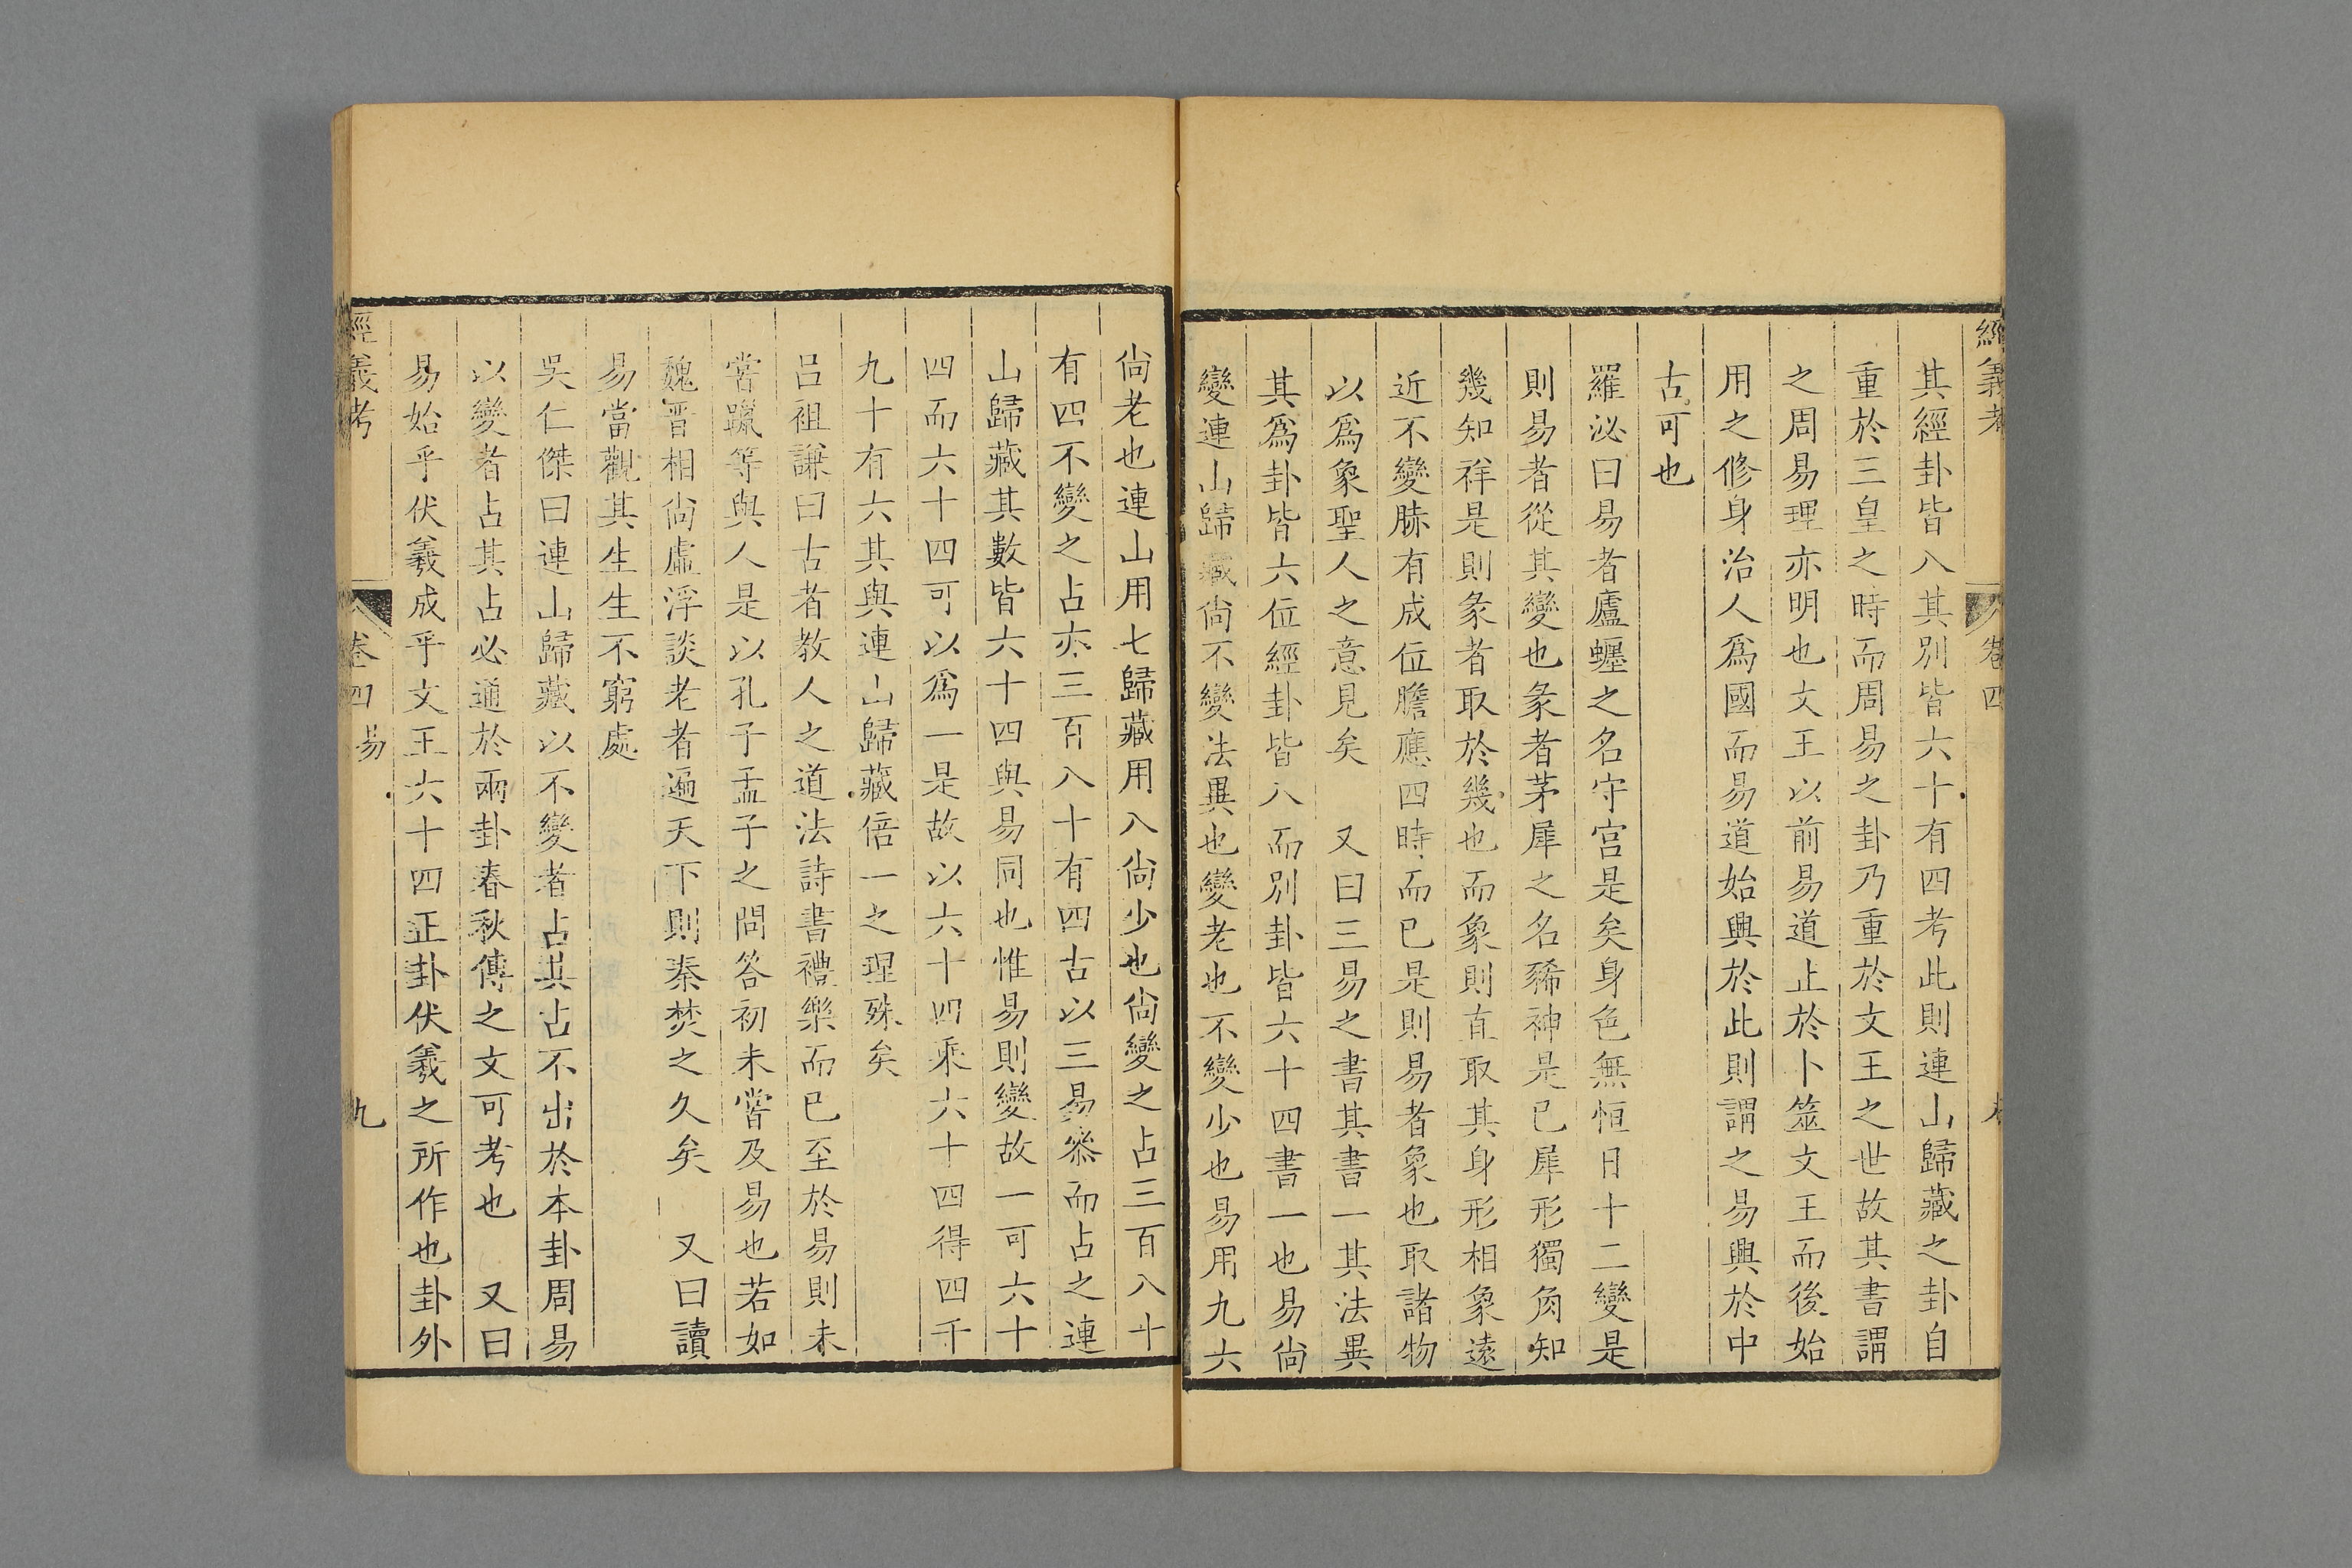 經義考 卷四
其經卦皆八其別皆六十有四考此則連山歸藏之卦自
重於三皇之時而周易之卦乃重於文王之世故其書謂
之周易理亦明也文王以前易道止於卜筮文王而後始
用之修身治人爲國而易道始興於此則謂之易興於中
古可也
羅泌曰易者廬蠷之名守宮是矣身色無恒日十二變是
則易者從其變也彖者茅犀之名豨神是已犀形獨角知
幾知祥是則彖者取於幾也而象則直取其身形相象遠
近不變胨有成位膽應四時而已是則易者象也取諸物
以爲象聖人之意見矣　又曰三易之書其書一其法異
其爲卦皆六位經卦皆八而別卦皆六十四書一也易尙
變連山歸藏尙不變法異也變老也不變少也易用九六
尙老也連山用七歸藏用八尙少也尙變之占三百八十
有四不變之占亦三百八十有四古以三易叅而占之連
山歸藏其數皆六十四與易同也惟易則變故一可六十
四而六十四可以爲一是故以六十四乘六十四得四千
九十有六其與連山歸藏倍一之理殊矣
呂祖謙曰古者教人之道法詩書禮樂而已至於易則未
嘗躐等與人是以孔子孟子之問答初未嘗及易也若如
魏晋相尙虛浮談老者遍天下則秦焚之久矣　又曰讀
易當觀其生生不窮處
吳仁傑曰連山歸藏以不變者占其占不出於本卦周易
以變者占其占必通於兩卦春秋傳之文可考也　又曰
易始乎伏羲成乎文王六十四正卦伏羲之所作也卦外
經義考 卷四 易 九